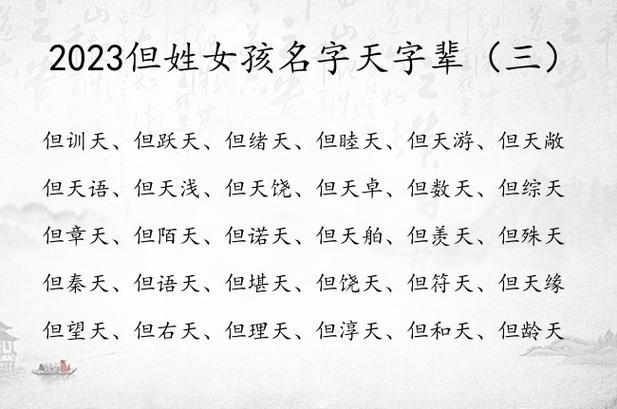 2023但姓女孩名字天字辈（三）
但训天、但跃天、但绪天、但睦天、但天游、但天敞
但天语、但天浅、但天饶、但天卓、但数天、但综天
但章天、但陌天、但诺天、但天舶、但羡天、但殊天
但秦天、但语天、但堪天、但饶天、但符天、但天缘
但望天、但右天、但理天、但淳天、但和天、但龄天